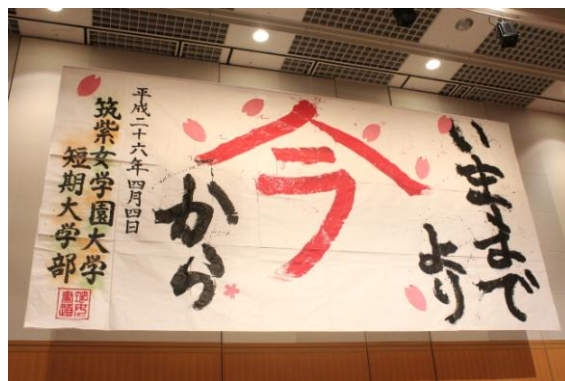 いままで
より
今
から
平成二十六年四月四日
筑紫女学園大学
短期大学部